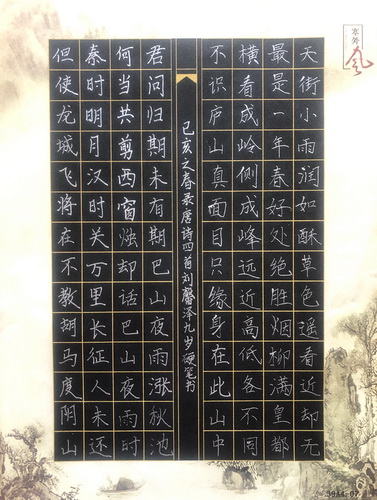 天街小雨润如酥草色遥看近却无
最是一年春好处绝胜烟柳满皇都
横看成岭侧成峰远近高低各不同
不识庐山真面目只缘身在此山中
己亥之春录唐诗四首刘馨泽九岁硬笔书
君问归期未有期巴山夜雨涨秋池
何当共剪西窗烛却话巴山夜雨时
秦时明月汉时关万里长征人未还
但使龙城飞将在不教胡马度阴山